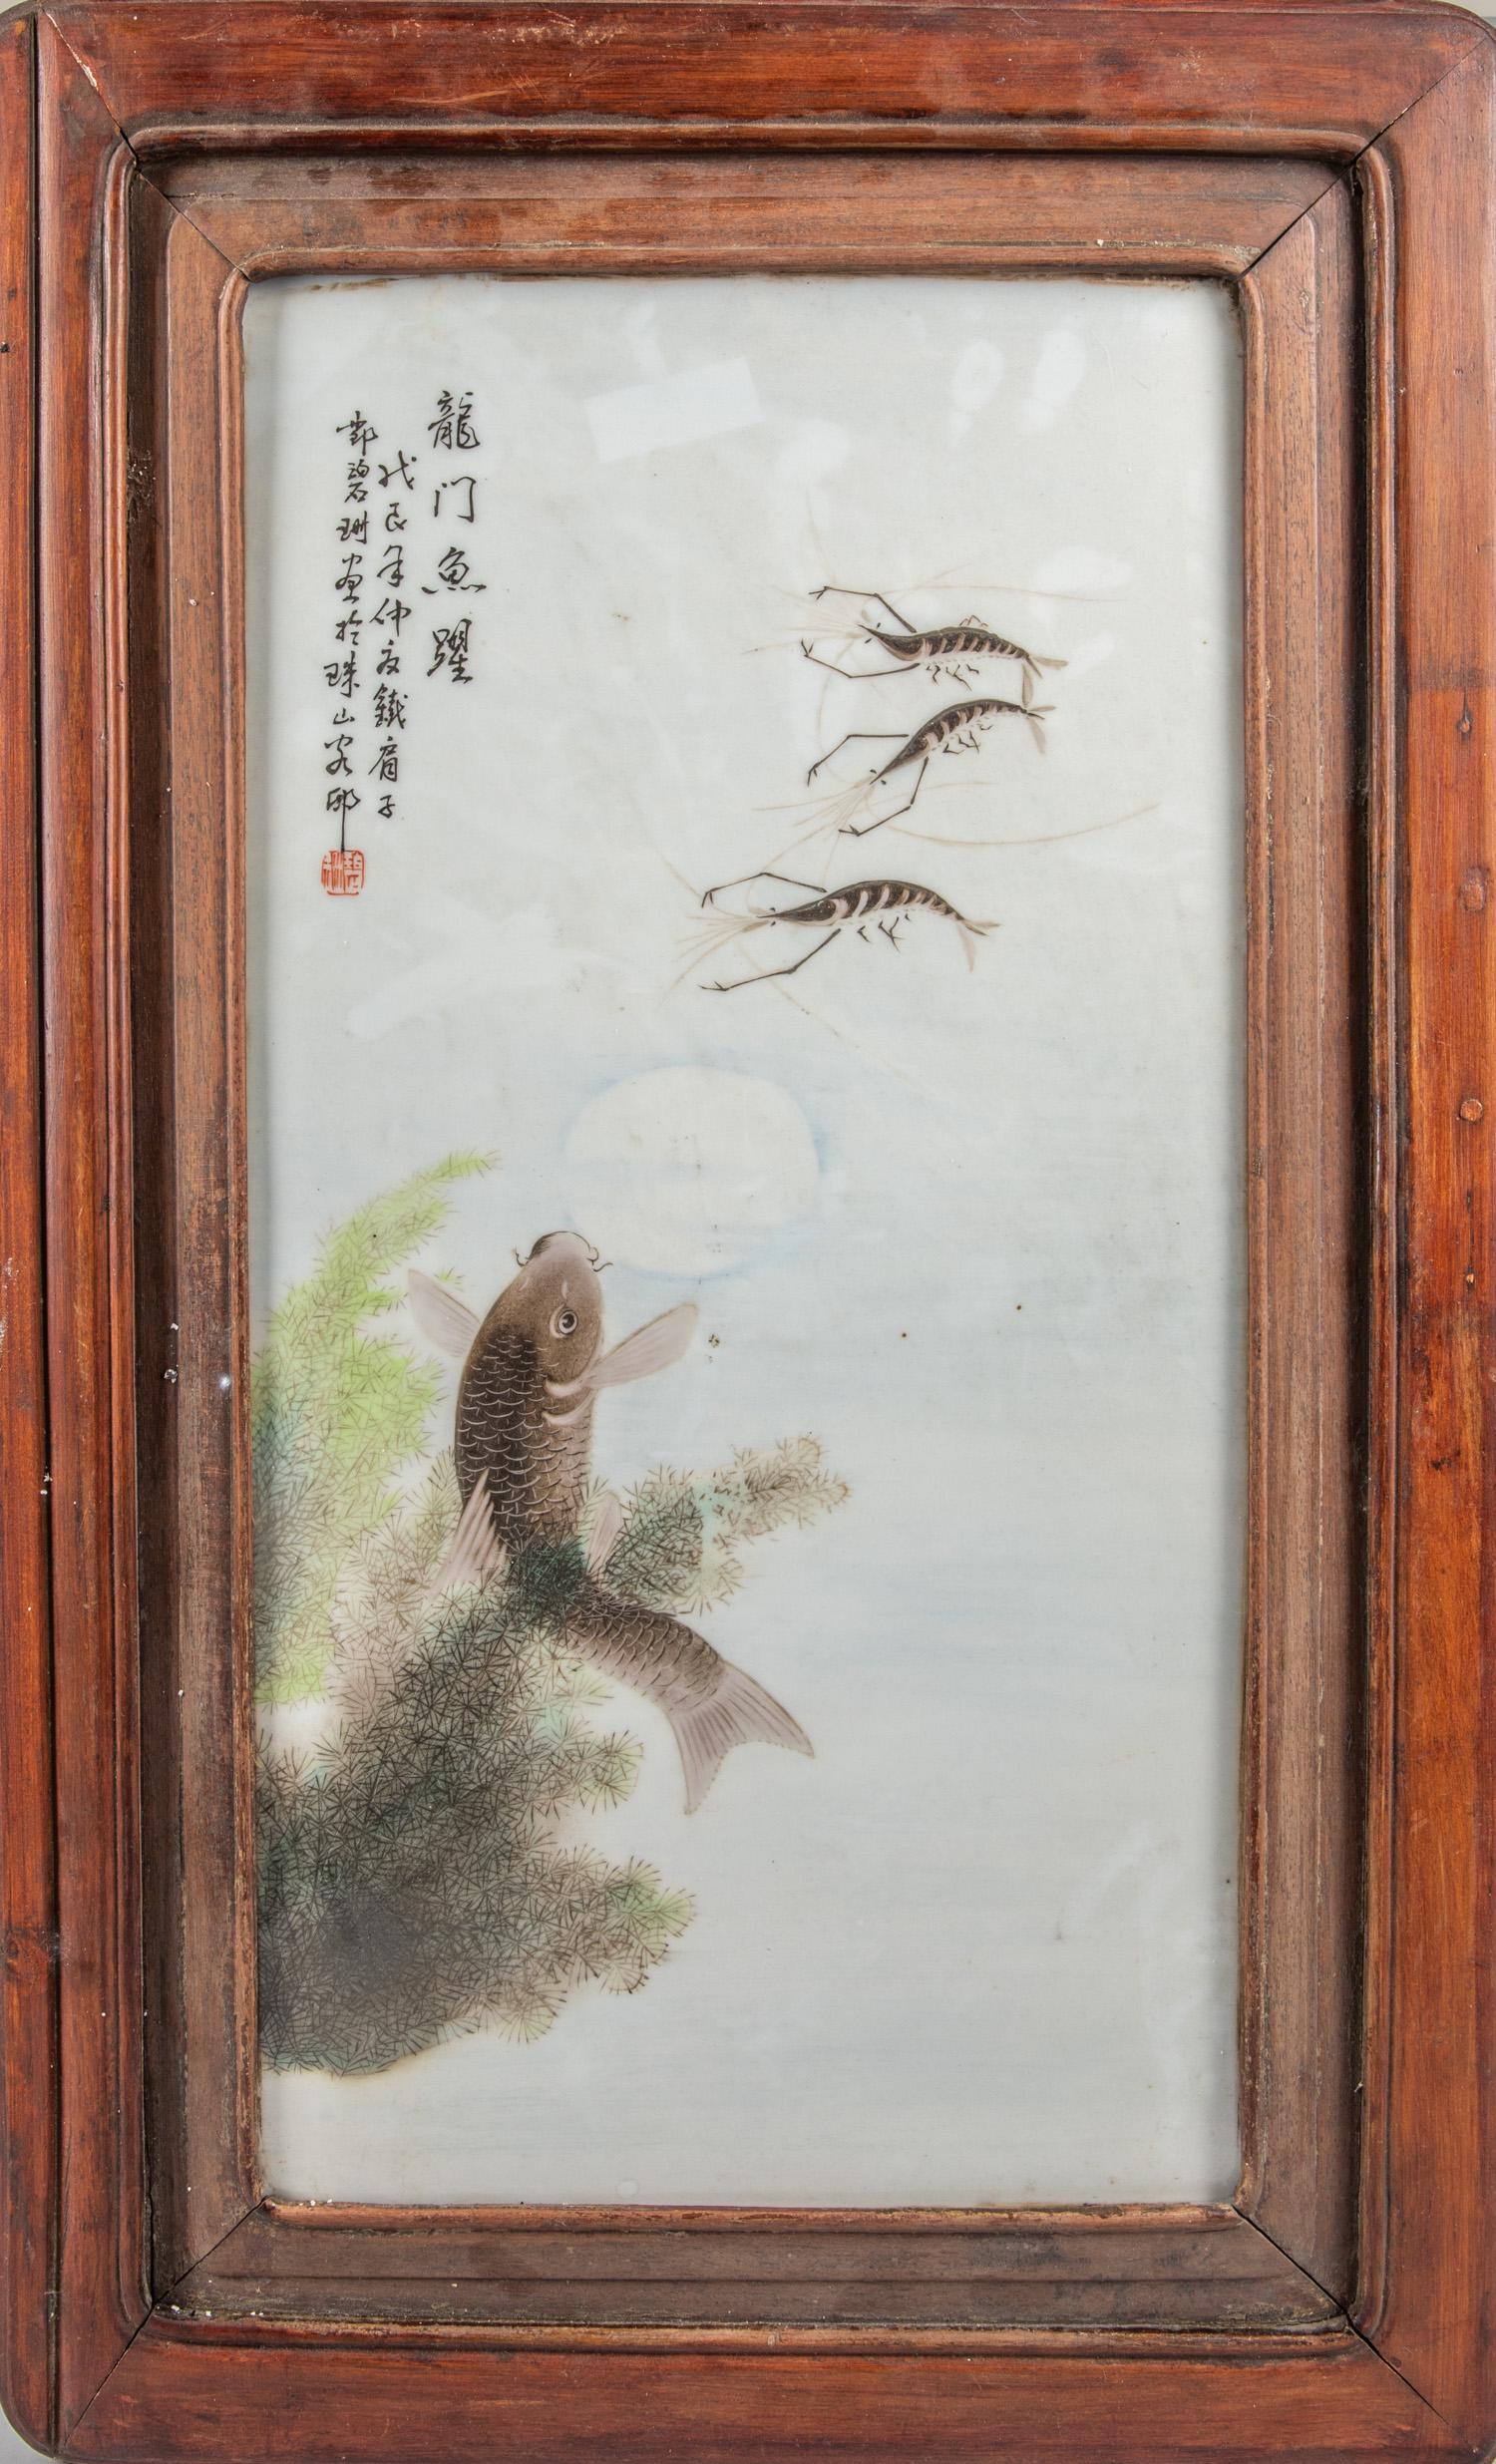 龍门魚躍
戊辰年仲夏鐵肩子
鄧碧珊画於珠山客邸
碧珊